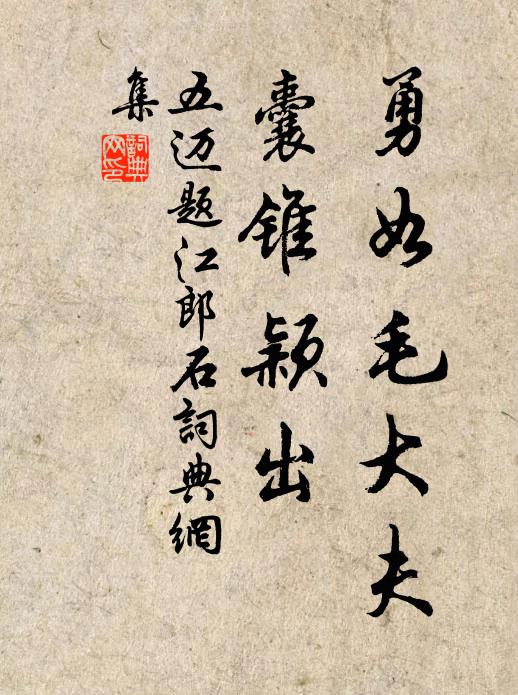 勇如毛大夫
囊锥颖出
五迈题江郎石詞典網
集
詞典
网印